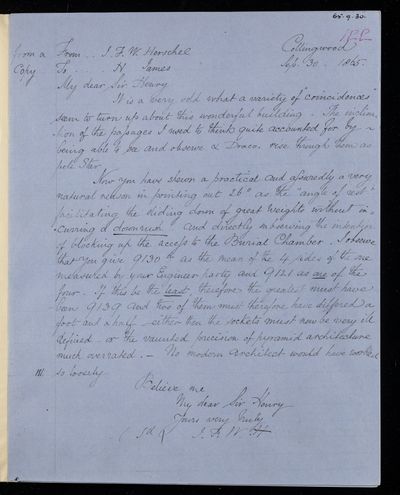 65·9·30.
from a
Copy
From .. J. F. W. Herschel
Collingwood
To .. H. James
Sep. 30. 1865.
My dear Sir Henry
It is a very odd what a variety of "coincidences"
seem to turn up about this wonderful building. The inclina-
tion of the passages I used to think quite accounted for by
being able to see and observe α Draco. rise through them as
pole star.
Now you have shewn a practical and assuredly a very
natural reason in pointing out 26° as the "angle of rest"
facilitating the sliding down of great weights without in-
curring a downrush and directly subserving the intention
of blocking up the access to the Burial Chamber. I observe
that you give 9130 in as the mean of the 4 sides of the one
measured by your Engineer party and 9121 as one of the
four. If this be the least therefore the greatest must have
been 9139 and two of them must therefore have differed a
foot and a half - either then the sockets must now be very ill
defined - or the vaunted precision of pyramid architecture
much overrated. - No modern architect would have worked
so loosely.
Believe me
My dear Sir Henry
Yours very truly
(Sd) J. F. W. H